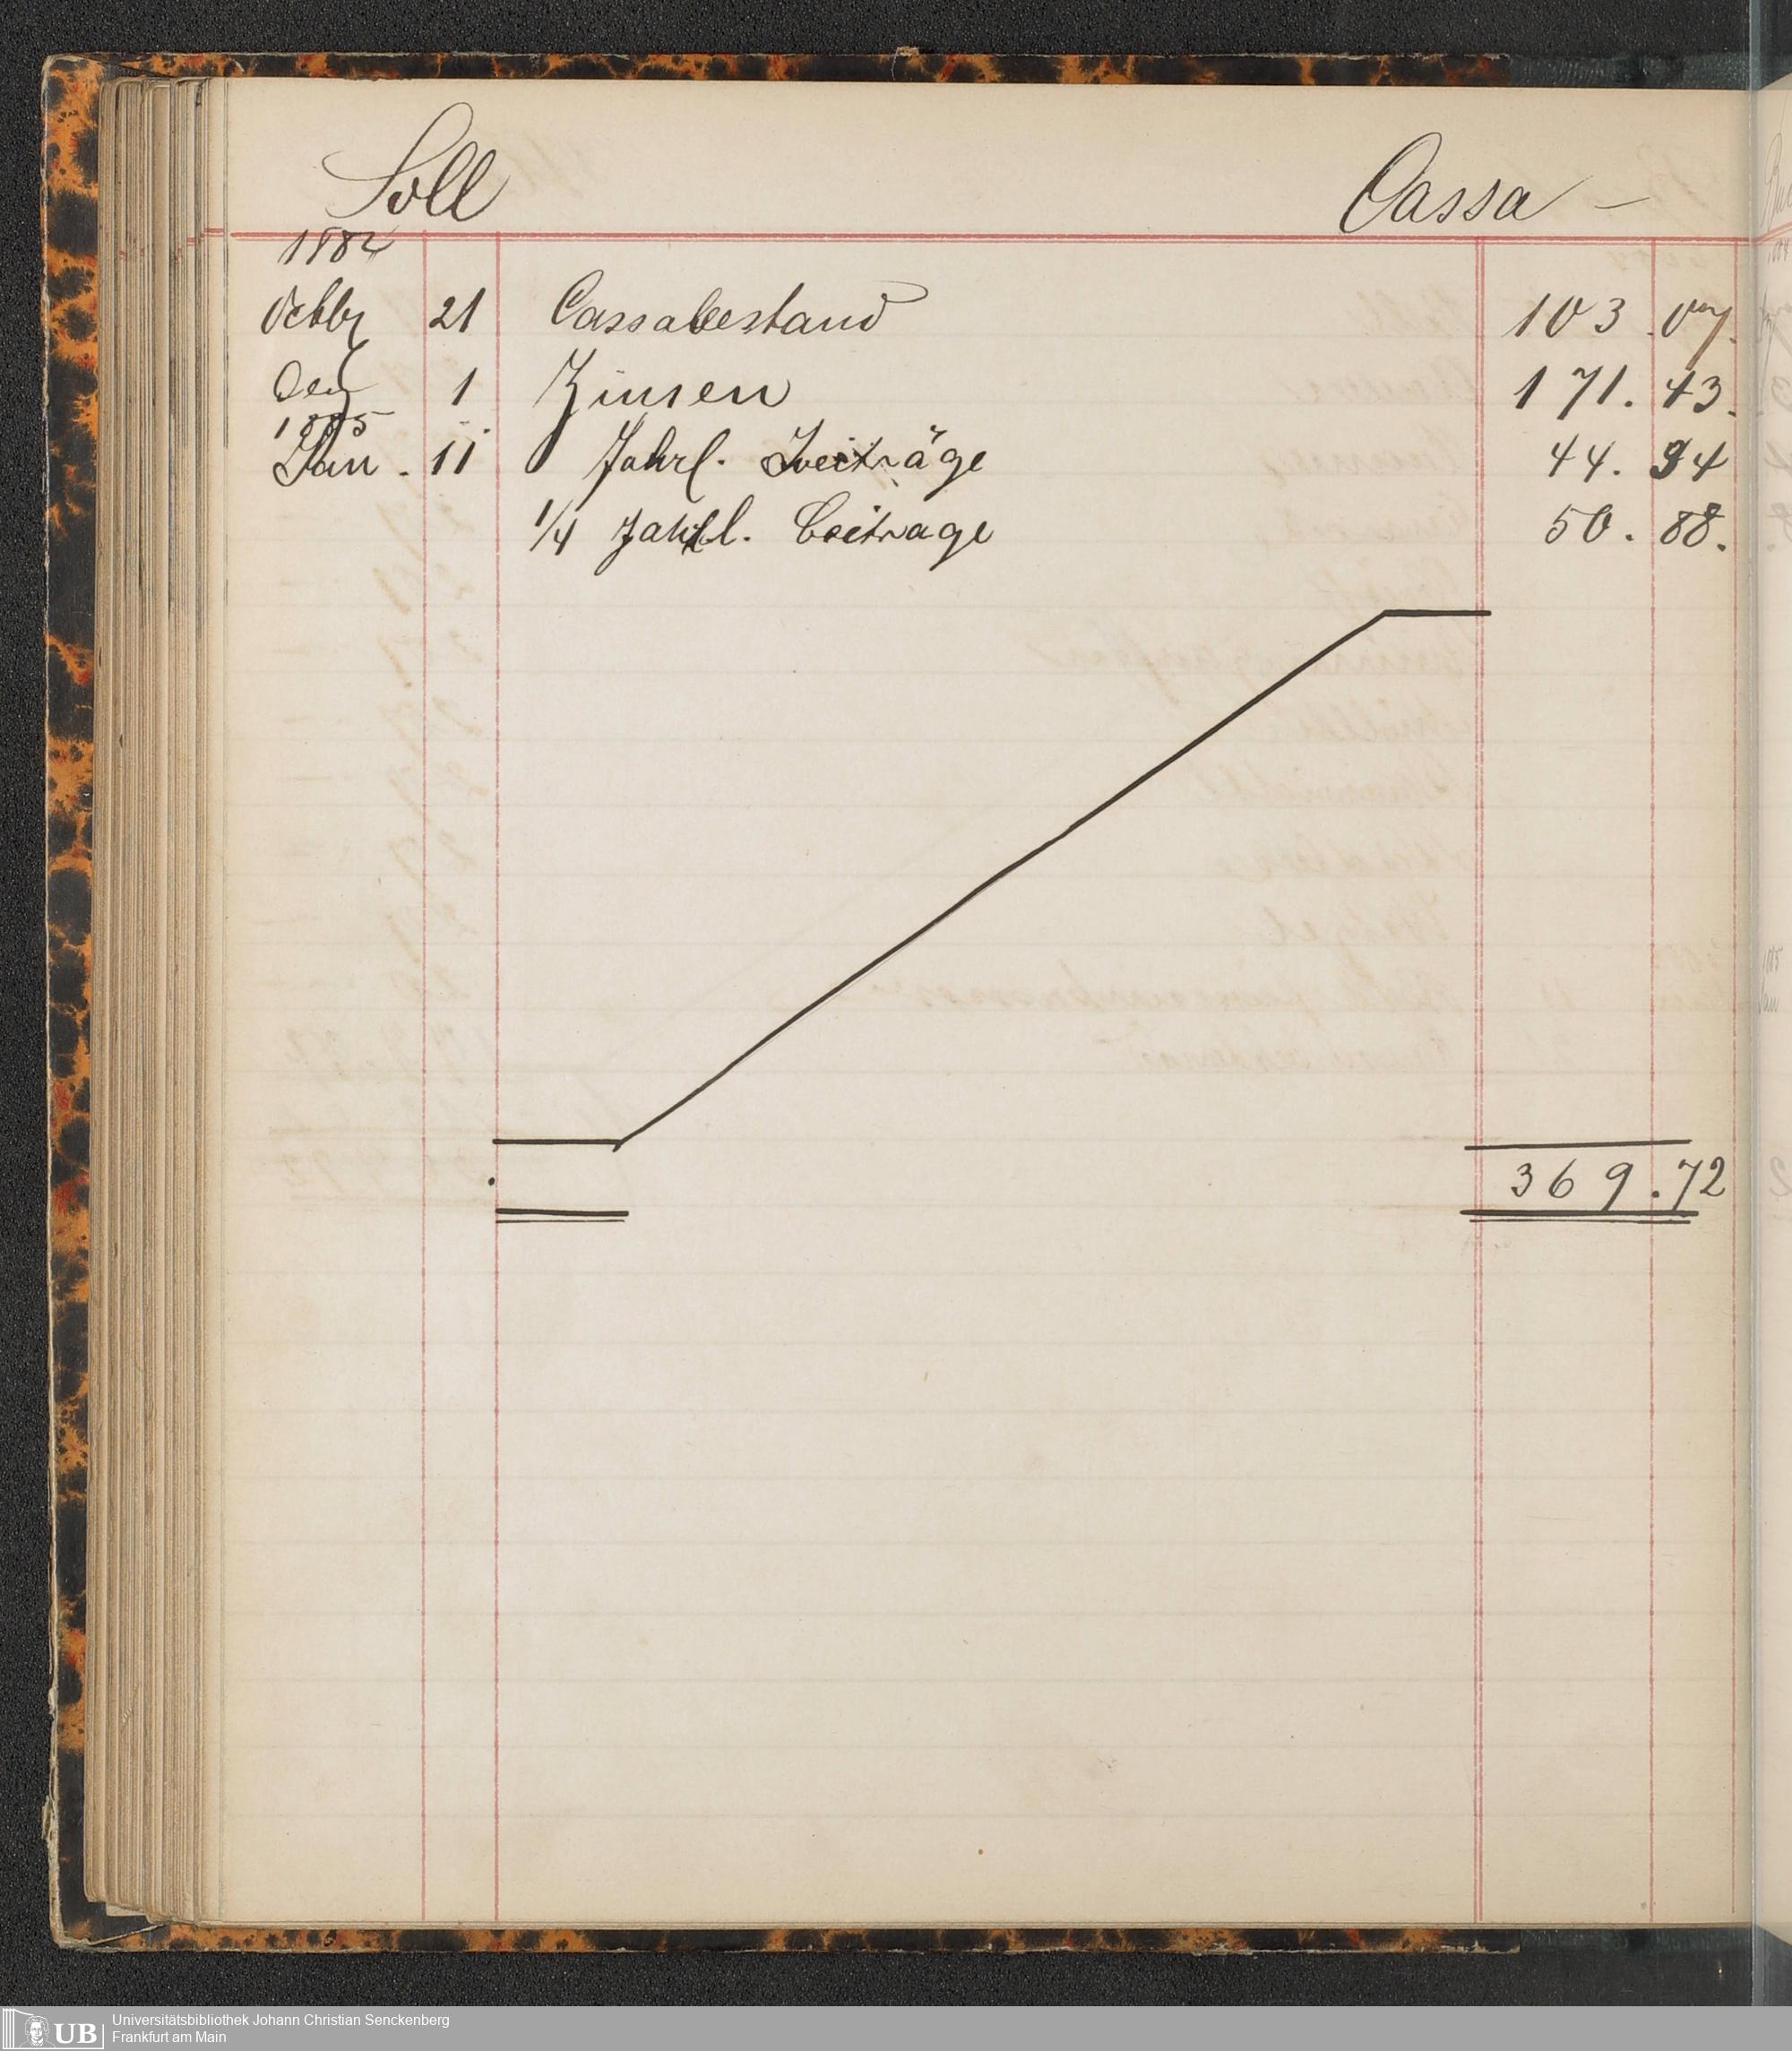 Soll Cassa –
1882
Octbr 21 Cassabestand 103.07.
Dez 1 Zinsen 171.43.
1885
Jan. 11 Jahrl. Beiträge 44.34
1/4 Jahrl. Beitrage 50.88.
369.72
UB Universitätsbibliothek Johann Christian Senckenberg
Frankfurt am Main